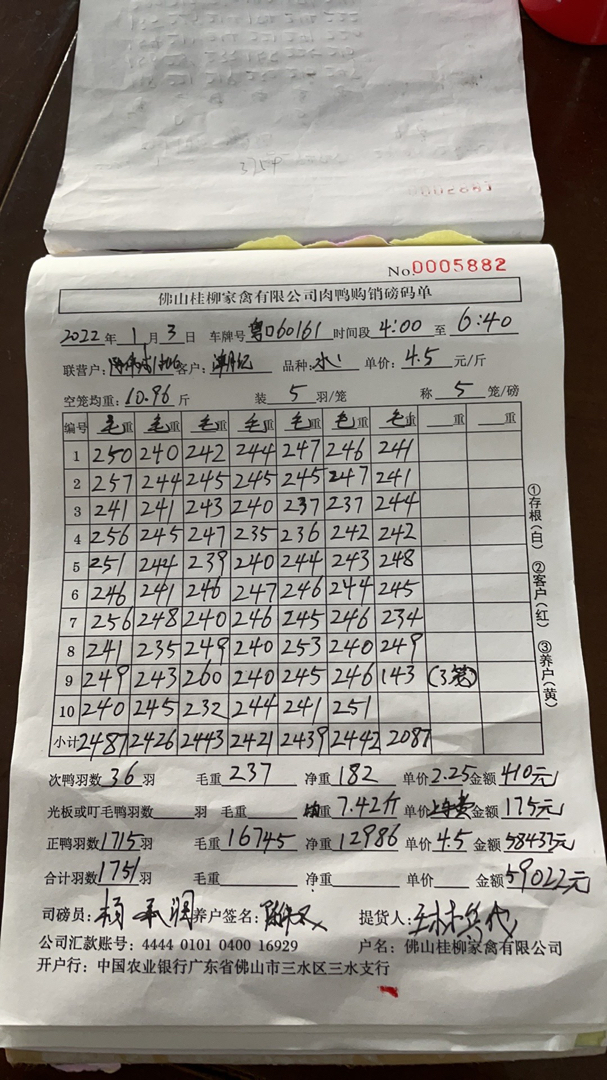 3254
0002883
No.0005882
佛山桂柳家禽有限公司肉鸭购销磅码单
2022年1月3日 车牌号粤 60161 时间段4:00至6:40
联营户: 客户: 品种: 单价:4.5元/斤
空笼均重:10.96斤 装5羽/笼 称5笼/磅
编号 毛重 毛重 毛重 毛重 毛重 毛重 毛重 重 重
1 250 240 242 244 247 246 241
2 257 244 245 245 245 247 241
3 241 241 243 240 237 237 244
4 256 245 247 235 236 242 242
5 251 244 239 240 244 243 248
6 246 241 246 247 246 244 245
7 256 248 240 246 245 246 234
8 241 235 249 240 253 240 249
9 249 243 260 240 245 246 143 (3笼)
10 240 245 232 244 241 251
小计 2487 2426 2443 2421 2439 2442 2087
①存根(白) ②客户(红) ③养户(黄)
次鸭羽数36羽 毛重237 净重182 单价2.25金额410元
光板或叮毛鸭羽数 羽 毛重 均重7.42斤 单价上车费金额175元
正鸭羽数1715羽 毛重16745 净重12986 单价4.5金额58437元
合计羽数1751羽 毛重 净重 单价 金额59022元
司磅员: 养户签名: 提货人:
公司汇款账号:4444 0101 0400 16929 户名:佛山桂柳家禽有限公司
开户行:中国农业银行广东省佛山市三水区三水支行